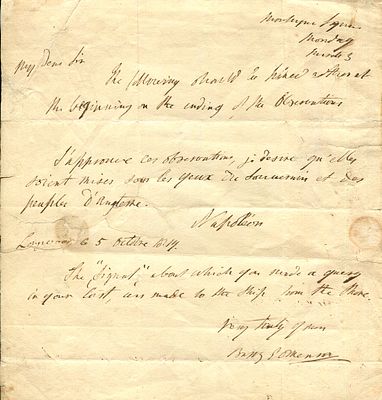 Montague Square
Monday
My Dear Sir
The following should be printed either at
the beginning or the ending of the Observations
J'approuve ces observations, je desire qu'elles
soient mises sous les yeux du Souverain et des
peuples d'Angleterre.
Napoléon
Longwood le 5 Octobre
The "Signals", about which you made a query
in your last, are made to the Ship from the Shore.
Very truly yours
Barry E. O'Meara